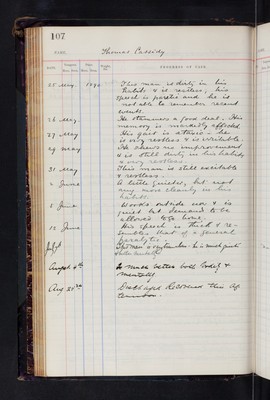 107
NAME. Thomas Cassidy
DATE. PROGRESS OF CASE.
25 May. 1896 This man is dirty in his
habits & is restless, his
speech is paretic and he is
not able to remember recent
events.
26 May He stammers a good deal. His
memory is markedly affected
27 May His gait is ataxic & he
is very restless & is irritable
29 May He shows no improvement
& is still dirty in his habits
& very restless.
31 May This man is still excitable
& restless.
2 June A little quieter, but not
any more cleanly in his
habits.
8 June Works outside now & is
quiet but demands to be
allowed to go home.
15 June His speech is thick & re-
sembles that of a general
paralytic.
August 4th Is much better both bodily &
mentally
Aug 28th Discharged Recovered